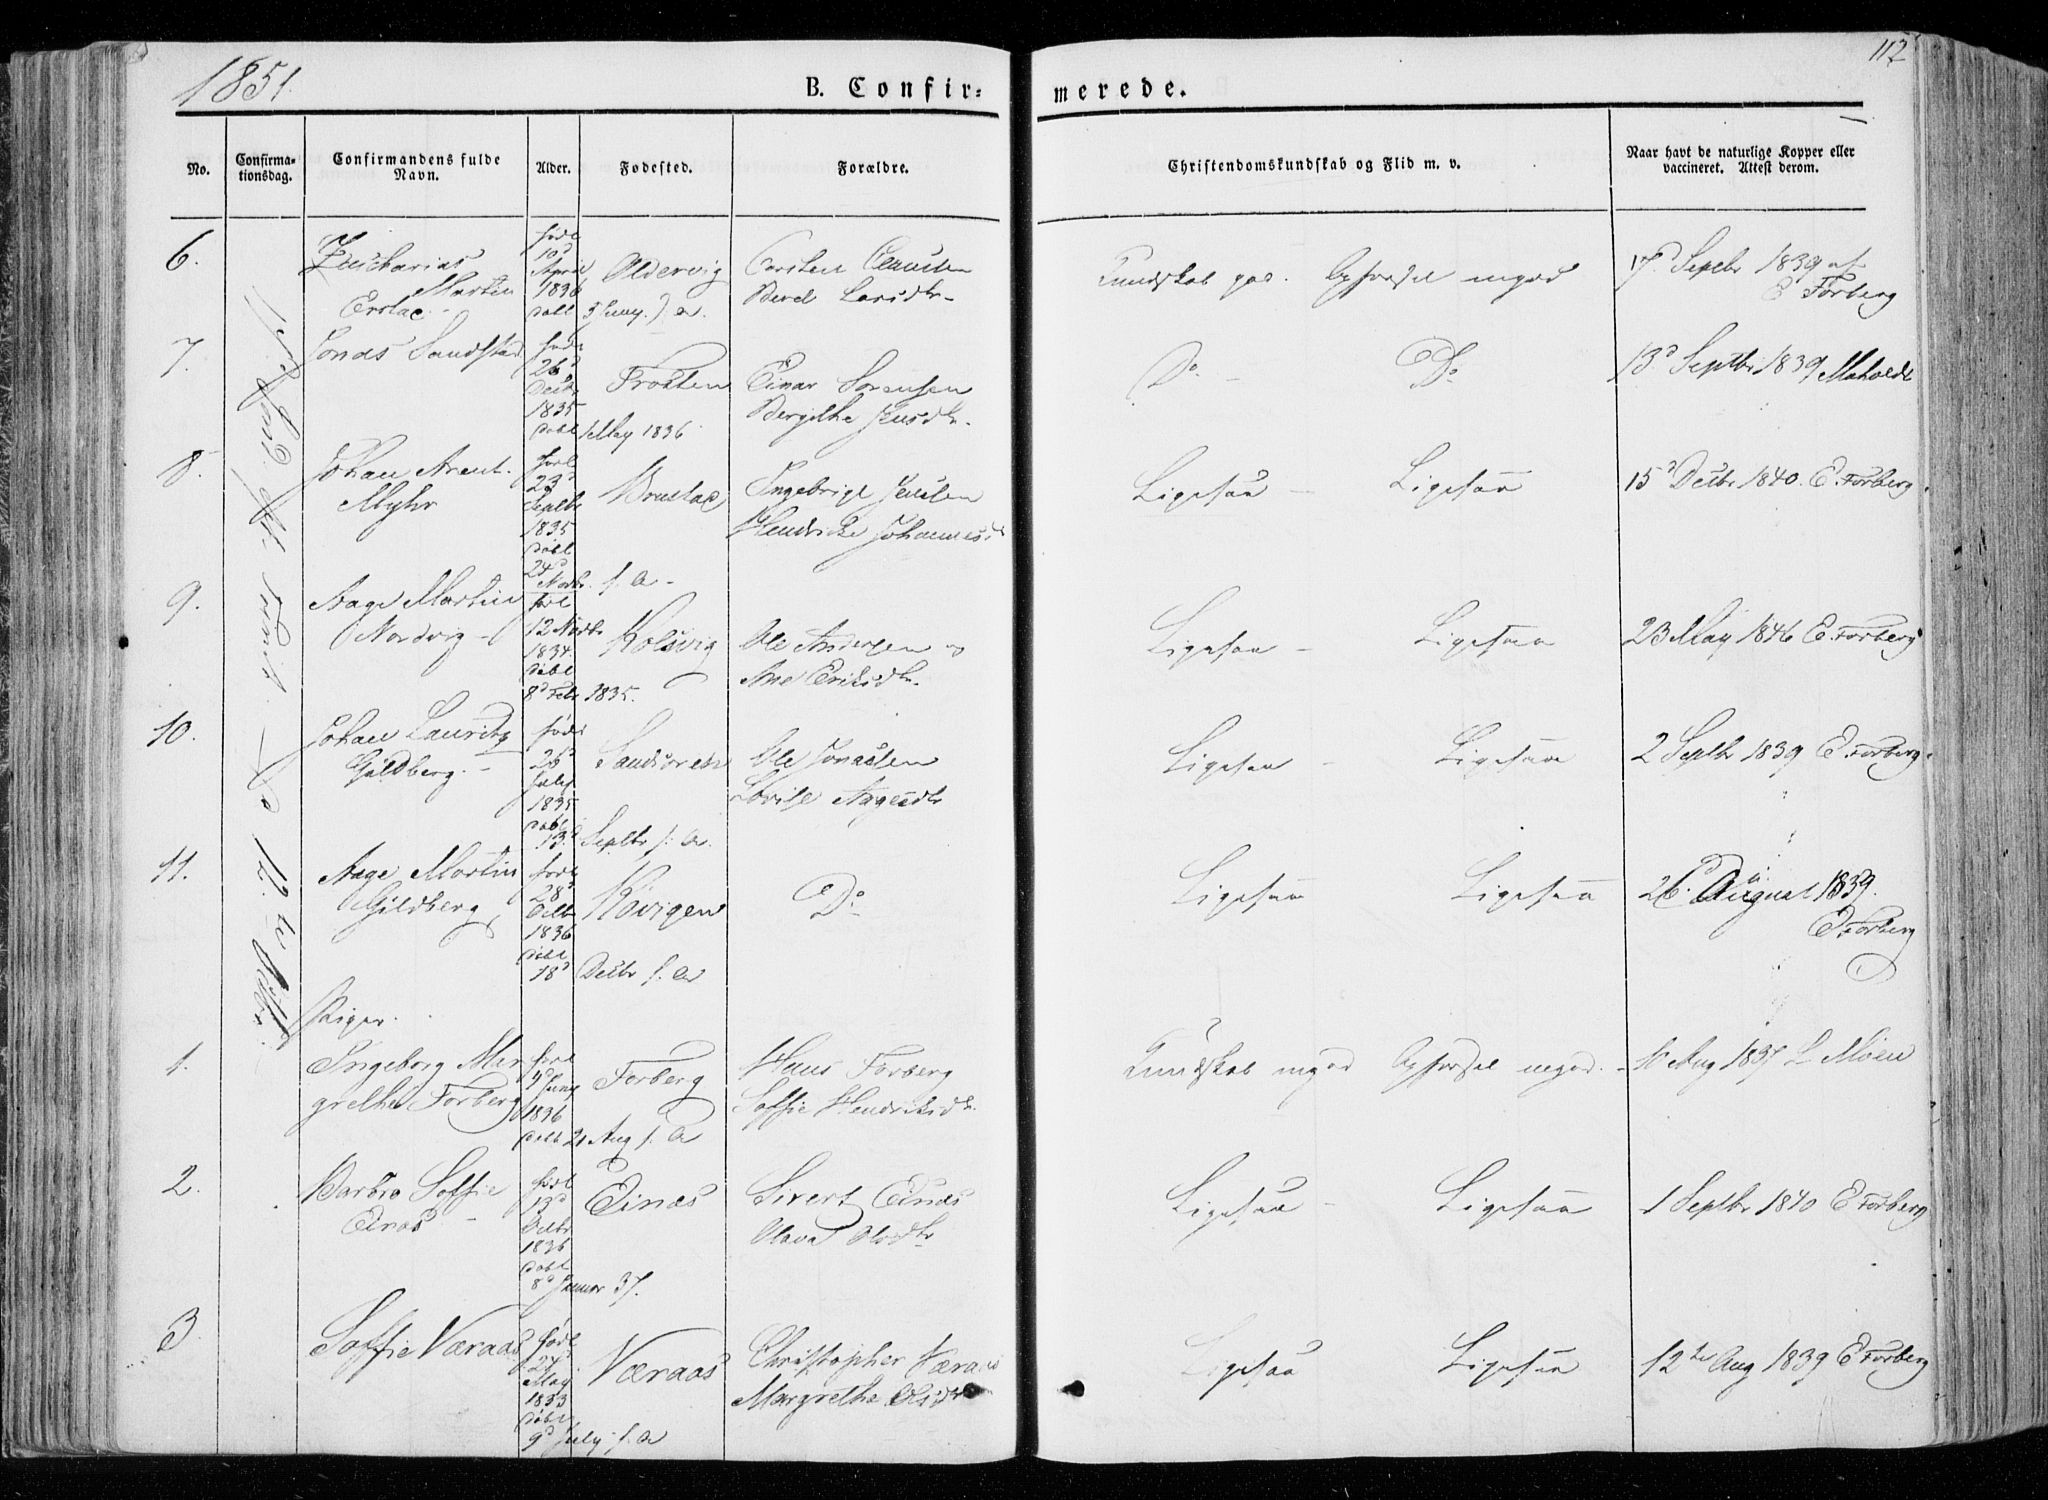 1851.
112
B. Confirmerede.
No.
Confirmationsdag.
Confirmandens fulde Navn.
Alder.
Fødested.
Forældre.
Christendomskundskab og Flid m. v.
Naar havt de naturlige Kopper eller vaccineret. Attest derom.
6.
Zacharias Martin
født 10d April 1836 døbt
Oldervig
Carsten
Berel Larsdtr
Kundskab god. Opførsel mgod
17d Septbr 1839 af E Forberg
7.
Jonas Sandstad
født 26d Decbr 1835 døbt 1 May 1836
Frosten
Einar Sørensen
Bergithe Jensdtr.
Do. Do.
13d Septbr 1839
8.
Johan Arent Myhr
født 23d Septbr 1835 døbt 24d Novbr. s. A
Ingebrigt Jensen
Hendrikke Johannesd
Ligesaa Ligesaa
15d Decbr 1840. E. Forberg.
9.
Aage Martin Nordvig
født 12 Novbr 1834. døbt 8d Febr 1835.
Kolsvig
Ole Andersen og
Ane Eriksdtr.
Ligesaa Ligesaa
23 May 1846 E. Forberg
10.
Johan Lauritz Gildberg.
født 26d July 1835 døbt 13d Septbr s. A.
Ole Jonassen
Lovise Aagesdtr
Ligesaa Ligesaa
2 Septbr 1839 E. Forberg.
11.
Aage Martin Gildberg
født 28d Octbr 1836 døbt 18d Decbr s. A
Do
Ligesaa Ligesaa
26d August 1839. E Forberg
Piger.
1.
Ingeborg Margrethe Forberg
født 4d Juny 1836 døbt 21 Aug s. A
Forberg
Hans Forberg
Soffie Hendriksdtr.
Kundskab mgod Opførsel megod.
10 Aug 1837 L Moen
2.
Barbro Soffie Einas
født 13d Octbr 1836 døbt 8d Januar 37.
Einæs
Sivert Einæs
Olava Olsdtr
Ligesaa Ligesaa
1 Septbr 1840 E Forberg
3.
Soffie Væraas
født 27d May 1833 døbt 9d July s. A
Væraas
Christopher Væraas
Margrethe Olsdtr
Ligesaa Ligesaa
12te Aug 1839 E Forberg